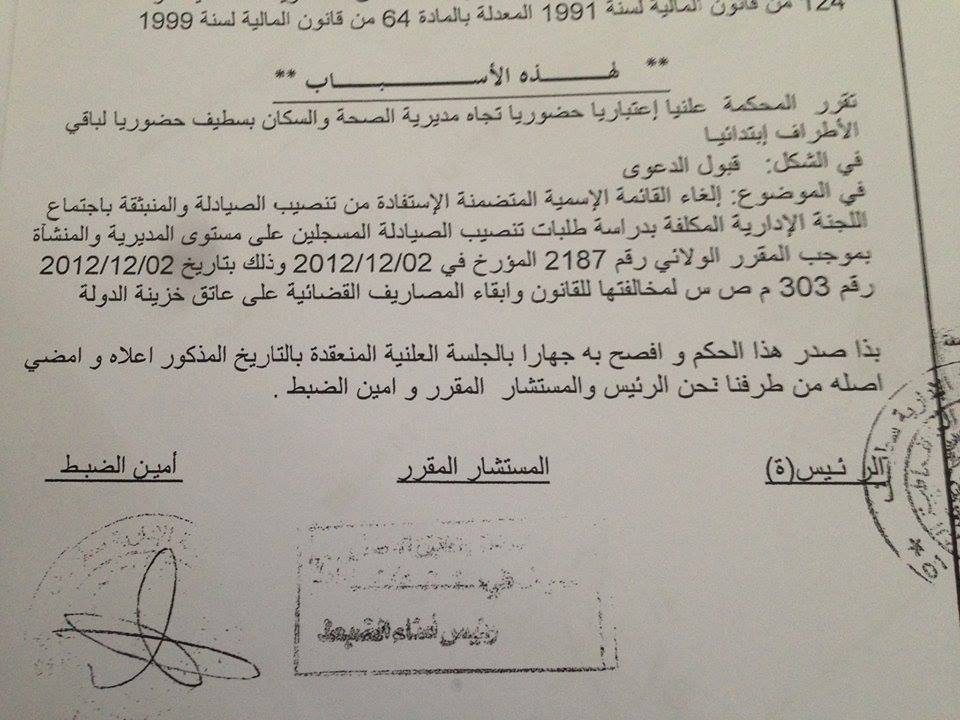 124 من قانون المالية لسنة 1991 المعدلة بالمادة 64 من قانون المالية لسنة 1999
** لهـــــذه الأســـــــبـــــاب **
تقرر المحكمة علنيا إعتباريا حضوريا تجاه مديرية الصحة والسكان بسطيف حضوريا لباقي
الأطراف إبتدائيا
في الشكل: قبول الدعوى
في الموضوع: إلغاء القائمة الإسمية المتضمنة الإستفادة من تنصيب الصيادلة والمنبثقة باجتماع
اللجنة الإدارية المكلفة بدراسة طلبات تنصيب الصيادلة المسجلين على مستوى المديرية والمنشأة
بموجب المقرر الولائي رقم 2187 المؤرخ في 2012/12/02 وذلك بتاريخ 2012/12/02
رقم 303 م ص س لمخالفتها للقانون وابقاء المصاريف القضائية على عاتق خزينة الدولة
بذا صدر هذا الحكم و افصح به جهارا بالجلسة العلنية المنعقدة بالتاريخ المذكور اعلاه و امضي
اصله من طرفنا نحن الرئيس والمستشار المقرر و امين الضبط .
الرئيس(ة) المستشار المقرر أمين الضبط
رئيس أمناء الضبط